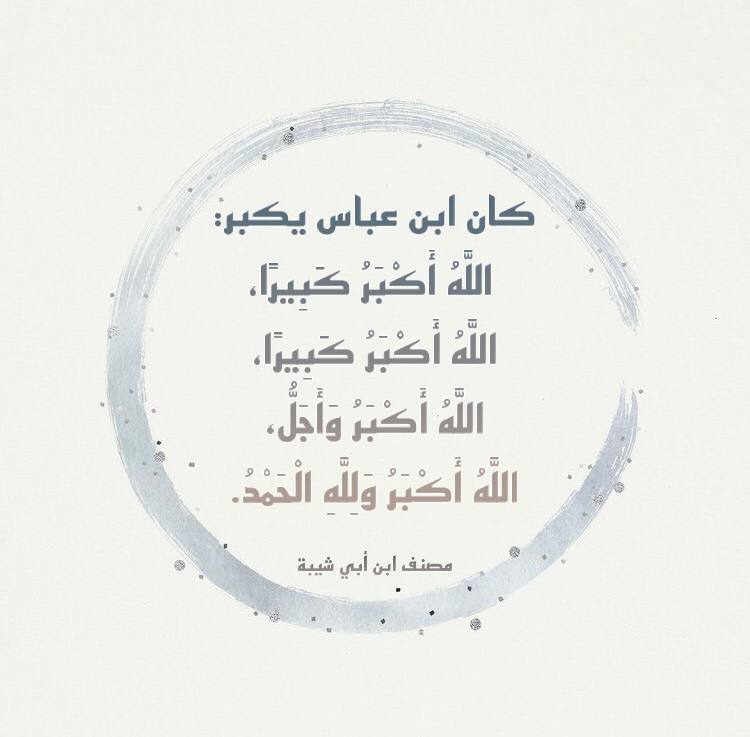 كان ابن عباس يكبر:
اللَّهُ أَكْبَرُ كَبِيرًا،
اللَّهُ أَكْبَرُ كَبِيرًا،
اللَّهُ أَكْبَرُ وَأَجَلُّ،
اللَّهُ أَكْبَرُ وَلِلَّهِ الْحَمْدُ.
مصنف ابن أبي شيبة